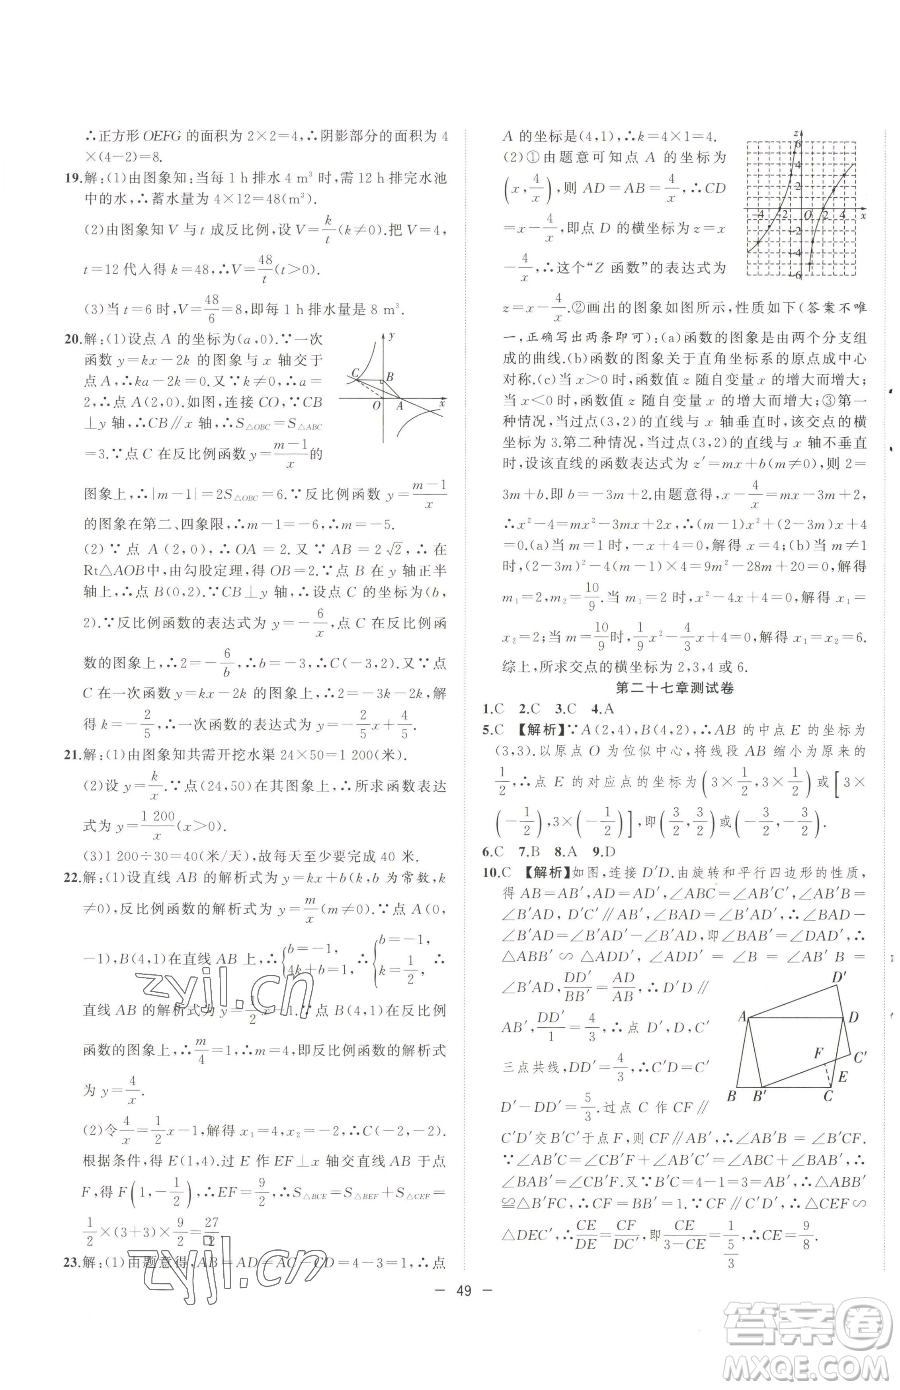 ∴正方形 OEFG 的面积为 2×2=4,∴阴影部分的面积 4
×(4-2)=8.
19.解:(1)由图象知:当每 1 h 排水 4 m³ 时,需 12 h 排完水池
中的水,∴蓄水量为 4×12=48(m³).
(2)由图象知 V 与 t 成反比例,设 V=k/t(k≠0).把 V=4,
t=12 代入得 k=48,∴V=48/t(t>0).
(3)当 t=6 时,V=48/6=8,即每 1 h 排水量是 8 m³.
20.解:(1)设点 A 的坐标为(a,0).∵一次
函数 y=kx-2k 的图象与 x 轴交于
点 A,∴ka-2k=0.又∵k≠0,∴a=
2,∴点 A(2,0).如图,连接 CO,∵CB
⊥y 轴,∴CB∥x 轴,∴S△OBC=S△ABC
=3.∵点 C 在反比例函数 y=(m-1)/x 的
图象上,∴|m-1|=2S△OBC=6.∵反比例函数 y=(m-1)/x
的图象在第二、四象限,∴m-1=-6,∴m=-5.
(2)∵点 A(2,0),∴OA=2.又∵AB=2√2,∴在
Rt△AOB中,由勾股定理,得 OB=2.∵点 B 在 y 轴正半
轴上,∴点 B(0,2).∵CB⊥y 轴,∴设点 C 的坐标为(b,
2).∵反比例函数的表达式为 y=-6/x,且点 C 在反比例函
数的图象上,∴2=-6/b,∴b=-3,∴点 C(-3,2).∵点
C 在一次函数 y=kx-2k 的图象上,∴2=-3k-2k,解
得 k=-2/5,∴一次函数的表达式为 y=-2/5x+4/5.
21.解:(1)由图象知共需开挖水渠 24×50=1 200(米).
(2)设 y=k/x.∵点(24,50)在其图象上,∴所求函数表达
式为 y=1 200/x(x>0).
(3)1 200÷30=40(米/天),故每天至少要完成 40 米.
22.解:(1)设直线 AB 的解析式为 y=kx+b(k,b 为常数,k
≠0),反比例函数的解析式为 y=m/x(m≠0).∵点 A(0,
-1),B(4,1)在直线 AB 上,∴{b=-1, 4k+b=1,∴{b=-1, k=1/2,∴
直线 AB 的解析式为 y=1/2x-1.∵点 B(4,1)在反比例
函数的图象上,∴m/4=1,∴m=4,即反比例函数的解析式
为 y=4/x.
(2)令4/x=1/2x-1,解得 x₁=4,x₂=-2,∴点 C(-2,-2).
根据条件,得 E(1,4).过 E 作 EF⊥x 轴交直线 AB 于点
F,得 F(1,-1/2),∴EF=9/2,∴S△BCE=S△BEF+S△CEF=
1/2×(3+3)×9/2=27/2.
23.解:(1)由题意得,AB=AD=AC=AD=4-3=1,∴点
A 的坐标是(4,1),∴k=4×1=4.
(2)①由题意可知点 A 的坐标为
(x,4/x),则 AD=AB=4/x,∴CD=x
-4/x,∴这个“Z 函数”的表达式为
z=x-4/x.②画出的图象如图所示,性质如下(答案不唯
一,正确写出两条即可):(a)函数的图象是由两个分支组
成的曲线.(b)函数的图象关于直角坐标系的原点成中心
对称.(c)当 x>0 时,函数值 z 随自变量 x 的增大而增大;
当 x<0 时,函数值 z 随自变量 x 的增大而增大;③第一
种情况,当过点(3,2)的直线与 x 轴垂直时,该交点的横
坐标为 3.第二种情况,当过点(3,2)的直线与 x 轴不垂直
时,设该直线的函数表达式为 z′=mx+b(m≠0),则 2=
3m+b.即 b=-3m+2,∴x-4/x=mx-3m+2,
∴x²-4=mx²-3mx+2x,∴(m-1)x²-(3m-2)x+4
=0.(a)当 m=1 时,-x+4=0,解得 x=4;(b)当 m≠1
时,(2-3m)²-4(m-1)×4=9m²-28m+20=0,解得
m₁=2,m₂=10/9.当 m=2 时,x²-4x+4=0,解得 x₁=
x₂=2;当 m=10/9时,x²-12x+36=0,解得 x₁=x₂=6.
综上,所求交点的横坐标为 2,3,4 或 6.
第二十七章测试卷
1.C 2.C 3.C 4.A
5.C 【解析】∵A(2,4),B(4,2),∴AB 的中点 E 的坐标为
(3,3).以原点 O 为位似中心,将线段 AB 缩小为原来的
1/2,∴点 E 的对应点的坐标为(3×1/2,3×1/2)或[3×
(-1/2),3×(-1/2)],即(3/2,3/2)或(-3/2,-3/2).
6.C 7.B 8.A 9.D
10.C 【解析】如图,连接 D′D.由旋转和平行四边形的性质,
得 AB=AB′,AD=AD′,∠ABC=∠AB′C′,∠AB′B=
∠B′AD,D′C′∥AB′,∠BAD=∠B′AD′,∴∠BAD-
∠B′AD=∠B′AD′-∠B′AD,即∠BAB′=∠DAD′,∴
△ABB′∽△ADD′,∴∠AD′D=∠AB′B=∠B′AD=
∠B′AD,DD′/BB′=AD/AB,∴D′D∥
AB′,DD′/1=4/3,∴点 D′,D,C′
三点共线,DD′=4/3,∴C′D=C′
D′-DD′=5/3.过点 C 作 CF∥
C′D′交B′C′于点F,∵CF∥AB′,∴∠AB′F=∠B′FC.
∵∠ABC=∠CB′F+∠AB′C′=∠BAB′+∠AB′B,∴
∠BAB′=∠CB′F.又∵B′C=AB=AB′,∴△ABB′
≌△B′FC,∴CF=BB′=1.∵CF∥C′D′,∴△CEF∽
△DEC′,∴CE/DE=CF/DC′,即CE/(3-CE)=1/(5/3),∴CE=9/8.
y
C
B
O
A
x
z
6
4
2
-4
-2
O
2
4
x
-2
-4
-6
D′
A
D
F
C′
E
B
B′
C
— 49 —
zyjl.cn
zyjl.cn
答案圈
MXQE.COM